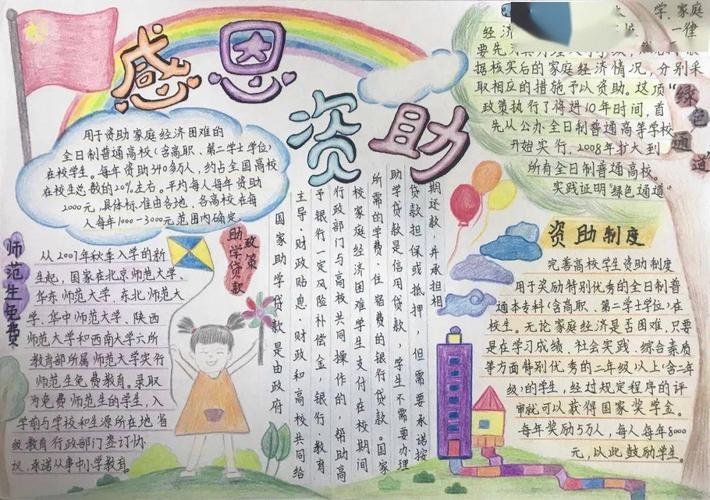 感恩
资助
用于资助家庭经济困难的
全日制普通高校(含高职、第二学士学位)
在校学生。每年资助约340多万，约占全国高校
在校生总数的20%左右。平均每人每年资助
2000元，具体标准由各地、各高校在每
人每年1000—3000元范围内确定。
师范生免费
从2007年秋季入学的新
生起，国家在北京师范大学、
华东师范大学、东北师范大
学、华中师范大学、陕西
师范大学和西南大学六所
教育部所属师范大学实行
师范生免费教育。录取
为免费师范生的学生，入
学前与学校和生源所在地省
级教育行政部门签订协
议，承诺从事中小学教育。
助学贷款
政策
国家助学贷款是由政府
主导、财政贴息、财政和高校共同给
予银行一定风险补偿金，银行、教育
行政部门与高校共同操作的，帮助高
校家庭经济困难学生支付在校期间
所需的学费、住宿费的银行贷款。国家
助学贷款是信用贷款，学生不需要办理
贷款担保或抵押，但需要承诺按
期还款，并承担相
学、家庭
经济 一律
要先
据核实后的家庭经济情况，分别采
取相应的措施予以资助。这项
政策执行了将近10年时间，首
先从公办全日制普通高等学校
开始实行，2008年扩大到
所有全日制普通高校。
实践证明“绿色通道”
绿色通道
资助制度
完善高校学生资助制度
用于奖励特别优秀的全日制普
通本专科(含高职、第二学士学位)在
校生。无论家庭经济是否困难，只要
是在学习成绩、社会实践、综合素质
等方面特别优秀的二年级以上(含二年
级)的学生，经过规定程序的评
审就可以获得国家奖学金。
每年奖励5万人，每人每年8000
元，以此鼓励学生。